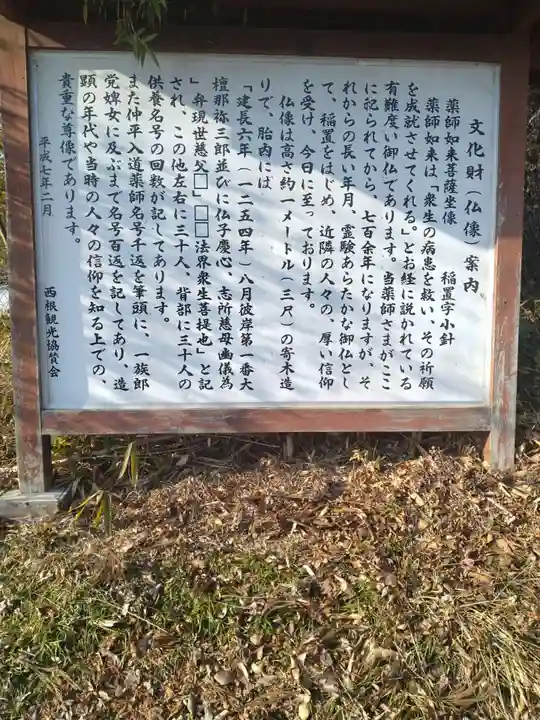 文化財(仏像)案内
薬師如来菩薩坐像　稲置字小針
薬師如来は「衆生の病患を救い、その祈願
を成就させてくれる」とお経に説かれている
有難度い御仏であります。当薬師さまがここ
に祀られてから、七百余年になりますが、そ
れからの長い年月、霊験あらたかな御仏とし
て、稲置をはじめ、近隣の人々の、厚い信仰
を受け、今日に至っております。
仏像は高さ約一メートル(三尺)の寄木造
りで、胎内には
「建長六年(一二五四年)八月彼岸第一番大
檀那弥三郎並びに仏子慶心、志所慈母幽儀為
」弁現世慈父□」□□法界衆生菩提也」と記
され、この他左右に三十人、背部に三十人の
供養名号の回数が記してあります。
また仲平入道薬師名号千返を筆頭に、一族郎
党婢女に及ぶまで名号百返を記してあり、造
顕の年代や当時の人々の信仰を知る上での、
貴重な尊像であります。
平成七年二月
西根観光協賛会